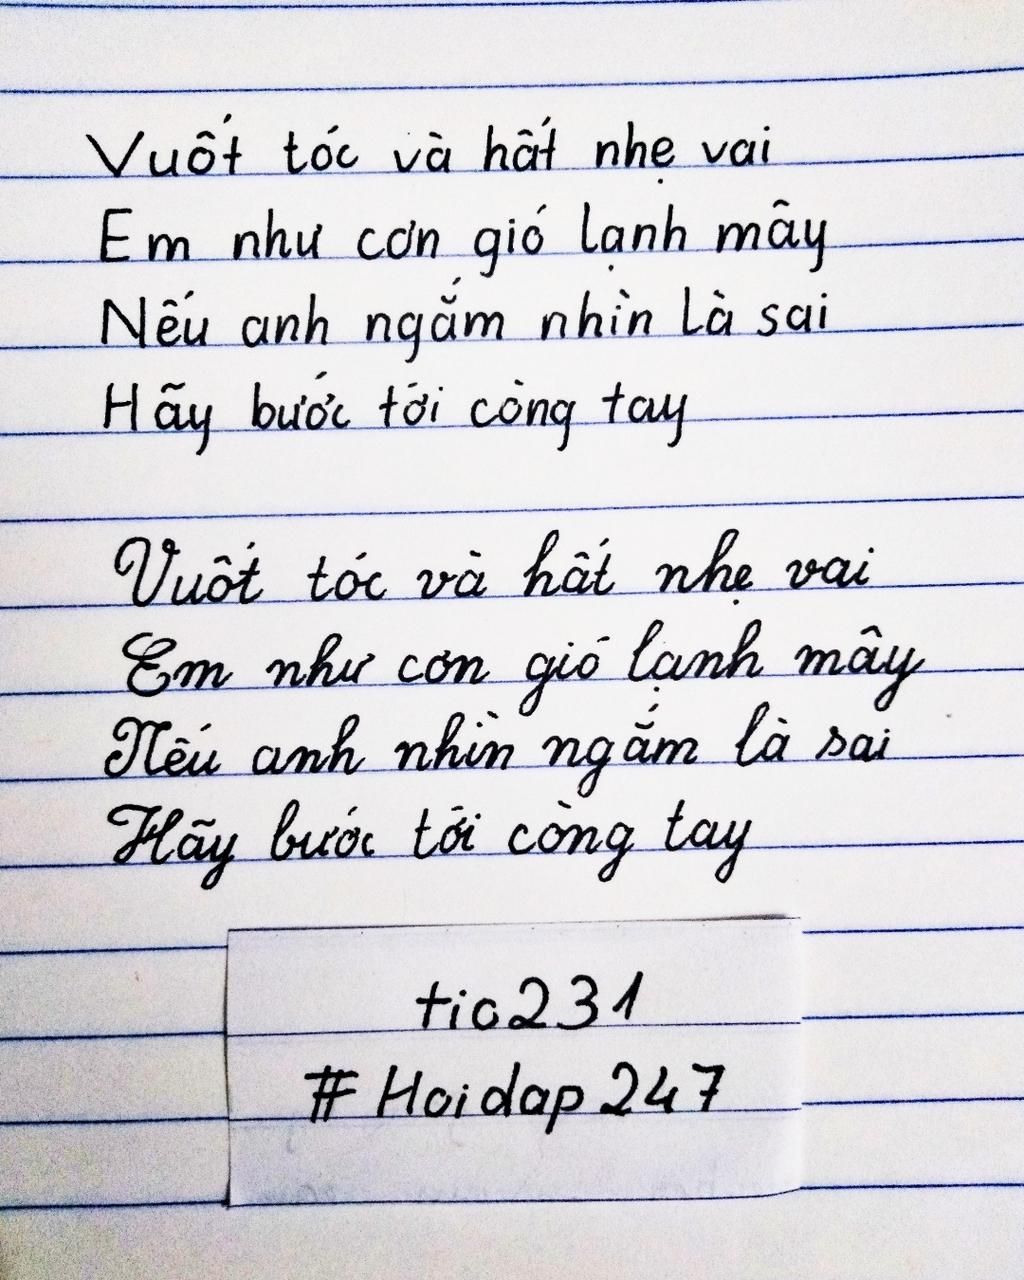 Vuốt tóc và hất nhẹ vai
Em như cơn gió lạnh mây
Nếu anh ngắm nhìn là sai
Hãy bước tới còng tay
Vuốt tóc và hất nhẹ vai
Em như cơn gió lạnh mây
Nếu anh nhìn ngắm là sai
Hãy bước tới còng tay
tic231
#Hoidap247